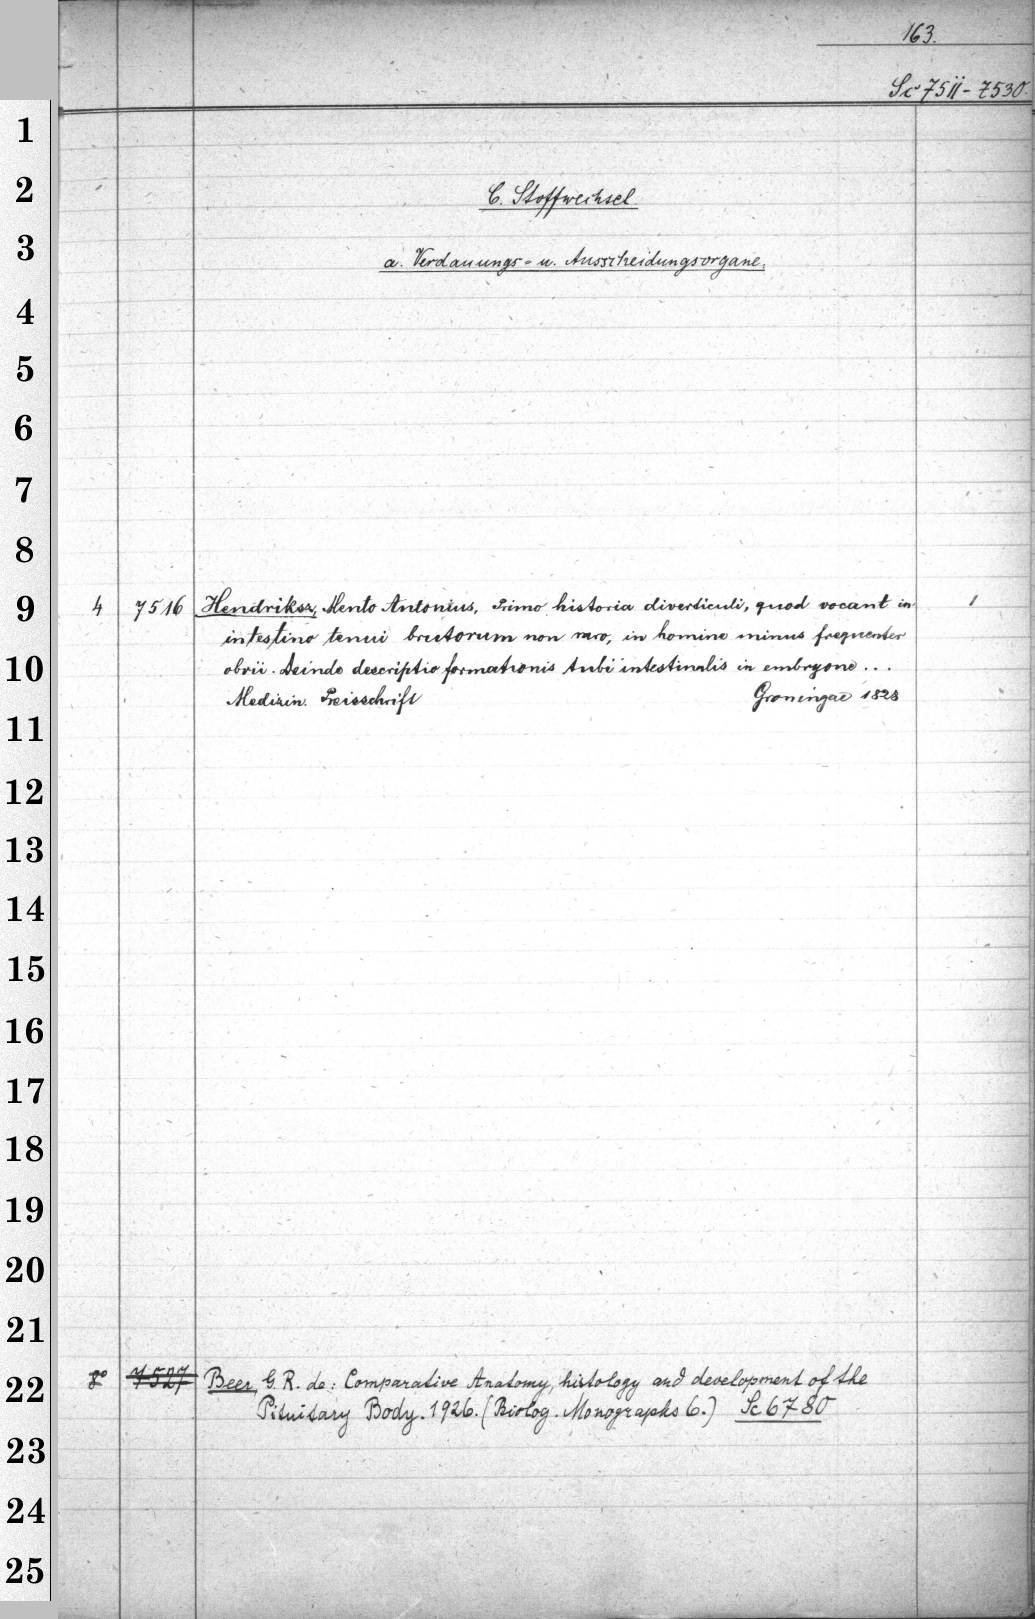 163.
Sc 7511 - 7530.
1
2
C. Stoffwechsel
3
a. Verdauungs- u. Ausscheidungsorgane.
4
5
6
7
8
9
4 7516 Hendriksz, Mento Antonius, Primo historia diverticuli, quod vocant in 1
intestino tenui brutorum non raro, in homine minus frequenter
10
obvii. Deinde descriptio formationis tubi intestinalis in embryone ...
Medizin. Preisschrift Groningae 1828
11
12
13
14
15
16
17
18
19
20
21
22
8° 7527 Beer, G. R. de: Comparative Anatomy, histology and development of the
Pituitary Body. 1926. (Biolog. Monographs 6.) Sc 6780
23
24
25